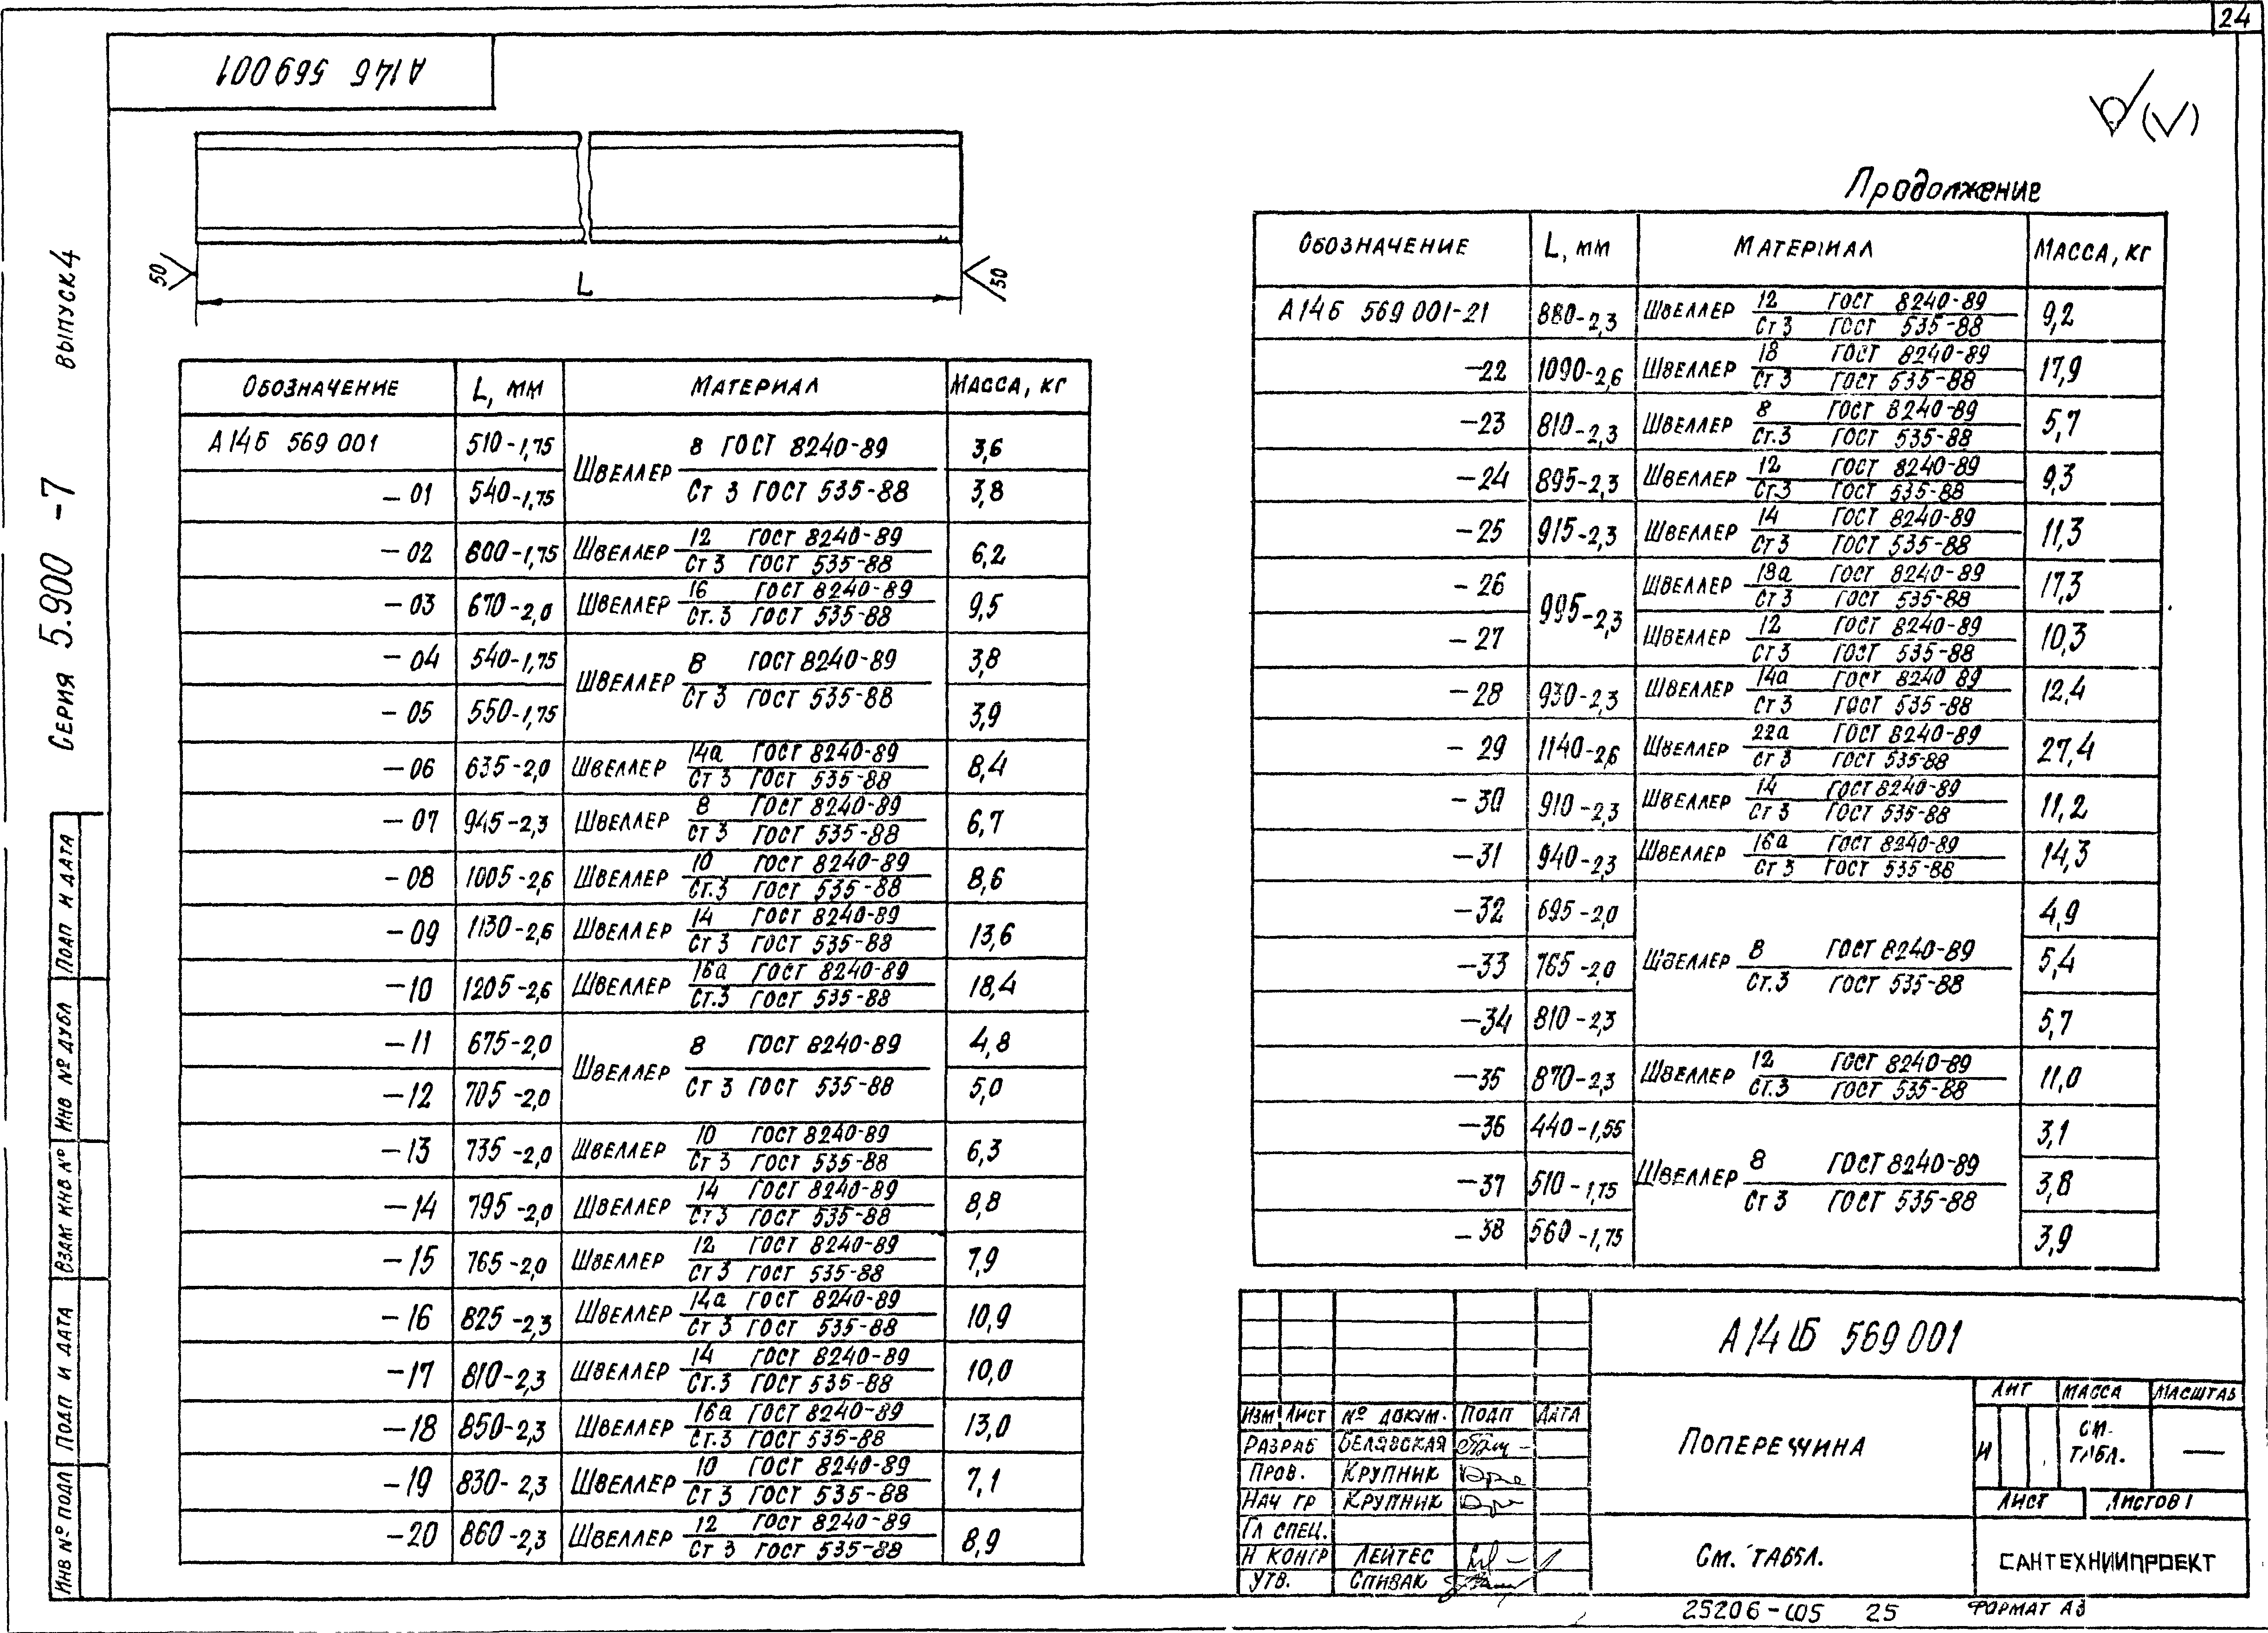 24
А14Б 569001
Серия 5.900-7 выпуск 4
50
L
50
Обозначение L, мм Материал Масса, кг
А14Б 569 001 510-1,75 Швеллер 8 ГОСТ 8240-89 3,6
Ст 3 ГОСТ 535-88
-01 540-1,75 3,8
-02 600-1,75 Швеллер 12 ГОСТ 8240-89 6,2
Ст 3 ГОСТ 535-88
-03 670-2,0 Швеллер 16 ГОСТ 8240-89 9,5
Ст. 3 ГОСТ 535-88
-04 540-1,75 Швеллер 8 ГОСТ 8240-89 3,8
Ст 3 ГОСТ 535-88
-05 550-1,75 3,9
-06 635-2,0 Швеллер 14а ГОСТ 8240-89 8,4
Ст 3 ГОСТ 535-88
-07 945-2,3 Швеллер 8 ГОСТ 8240-89 6,7
Ст 3 ГОСТ 535-88
-08 1005-2,6 Швеллер 10 ГОСТ 8240-89 8,6
Ст.3 ГОСТ 535-88
-09 1130-2,6 Швеллер 14 ГОСТ 8240-89 13,6
Ст 3 ГОСТ 535-88
-10 1205-2,6 Швеллер 16а ГОСТ 8240-89 18,4
Ст.3 ГОСТ 535-88
-11 675-2,0 Швеллер 8 ГОСТ 8240-89 4,8
Ст 3 ГОСТ 535-88
-12 705-2,0 5,0
-13 735-2,0 Швеллер 10 ГОСТ 8240-89 6,3
Ст 3 ГОСТ 535-88
-14 795-2,0 Швеллер 14 ГОСТ 8240-89 8,8
Ст 3 ГОСТ 535-88
-15 765-2,0 Швеллер 12 ГОСТ 8240-89 7,9
Ст 3 ГОСТ 535-88
-16 825-2,3 Швеллер 14а ГОСТ 8240-89 10,9
Ст 3 ГОСТ 535-88
-17 810-2,3 Швеллер 14 ГОСТ 8240-89 10,0
Ст.3 ГОСТ 535-88
-18 850-2,3 Швеллер 16а ГОСТ 8240-89 13,0
Ст.3 ГОСТ 535-88
-19 830-2,3 Швеллер 10 ГОСТ 8240-89 7,1
Ст 3 ГОСТ 535-88
-20 860-2,3 Швеллер 12 ГОСТ 8240-89 8,9
Ст 3 ГОСТ 535-88
Продолжение
Обозначение L, мм Материал Масса, кг
А14Б 569 001-21 880-2,3 Швеллер 12 ГОСТ 8240-89 9,2
Ст 3 ГОСТ 535-88
-22 1090-2,6 Швеллер 18 ГОСТ 8240-89 17,9
Ст 3 ГОСТ 535-88
-23 810-2,3 Швеллер 8 ГОСТ 8240-89 5,7
Ст.3 ГОСТ 535-88
-24 895-2,3 Швеллер 12 ГОСТ 8240-89 9,3
Ст.3 ГОСТ 535-88
-25 915-2,3 Швеллер 14 ГОСТ 8240-89 11,3
Ст 3 ГОСТ 535-88
-26 995-2,3 Швеллер 18а ГОСТ 8240-89 17,3
Ст 3 ГОСТ 535-88
-27 Швеллер 12 ГОСТ 8240-89 10,3
Ст 3 ГОСТ 535-88
-28 930-2,3 Швеллер 14а ГОСТ 8240 89 12,4
Ст 3 ГОСТ 535-88
-29 1140-2,6 Швеллер 22а ГОСТ 8240-89 27,4
Ст 3 ГОСТ 535-88
-30 910-2,3 Швеллер 14 ГОСТ 8240-89 11,2
Ст 3 ГОСТ 535-88
-31 940-2,3 Швеллер 16а ГОСТ 8240-89 14,3
Ст 3 ГОСТ 535-88
-32 695-2,0 4,9
-33 765-2,0 Швеллер 8 ГОСТ 8240-89 5,4
Ст.3 ГОСТ 535-88
-34 810-2,3 5,7
-35 870-2,3 Швеллер 12 ГОСТ 8240-89 11,0
Ст.3 ГОСТ 535-88
-36 440-1,55 3,1
-37 510-1,75 Швеллер 8 ГОСТ 8240-89 3,8
Ст 3 ГОСТ 535-88
-38 560-1,75 3,9
А14Б 569 001
Изм Лист № докум. Подп Дата
Разраб Белявская
Пров. Крупник
Нач гр Крупник
Гл спец.
Н контр Лейтес
Утв. Спивак
Поперечина
См. табл.
Лит Масса Масштаб
И См. табл. —
Лист Листов 1
САНТЕХНИИПРОЕКТ
25206-05 25 Формат А3
Инв № подл Подп и дата Взам инв № Инв № дубл Подп и дата